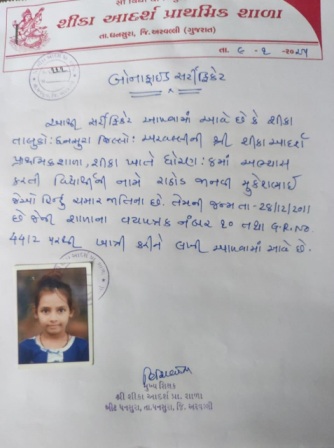 શીકા આદર્શ પ્રાથમિક શાળા
તા.ધનસુરા, જિ.અરવલ્લી (ગુજરાત)
તા. ૬-૧-૨૦૨૫
બોનાફાઈડ સર્ટીફિકેટ
આથી સર્ટીફિકેટ આપવામાં આવે છે કે શીકા
તાલુકો:ધનસુરા જિલ્લો: અરવલ્લીની શ્રી શીકા આદર્શ
પ્રાથમિકશાળા, શીકા ખાતે ધોરણ: ૬માં અભ્યાસ
કરતી વિદ્યાર્થીની નામે રાઠોડ જાનવી મુકેશભાઈ
જેઓ હિન્દુ ચમાર જાતિના છે. તેમની જન્મ તા-
છે જેની શાળાના વયપત્રક નંબર ૧૦ તથા G.R.No.
44/2 પરથી ખાત્રી કરીને લખી આપવામાં આવે છે.
મુખ્ય શિક્ષક
શ્રી શીકા આદર્શ પ્રા. શાળા
બીટ ધનસુરા, તા.ધનસુરા, જિ. અરવલ્લી